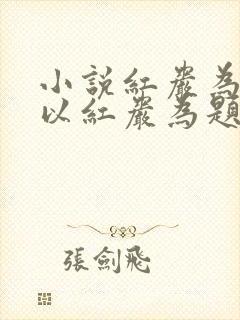 小説紅巖為
以紅巖為題
張劍飛